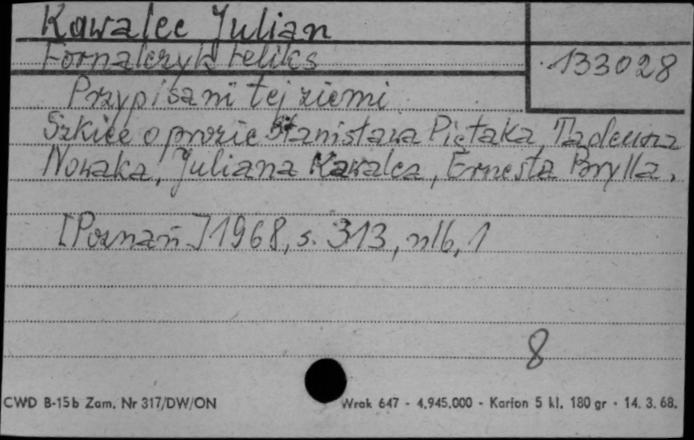 Kawalec Julian
Fornalczyk Feliks
133028
Przypisani tej ziemi
Szkice o prozie Stanisława Piętaka, Tadeusza
Nowaka, Juliana Kawalca, Ernesta Brylla.
[Poznań] 1968, s. 313, nlb, 1
8
CWD B-15b Zam. Nr 317/DW/ON Wrak 647 - 4.945.000 - Karton 5 kl. 180 gr - 14. 3. 68.